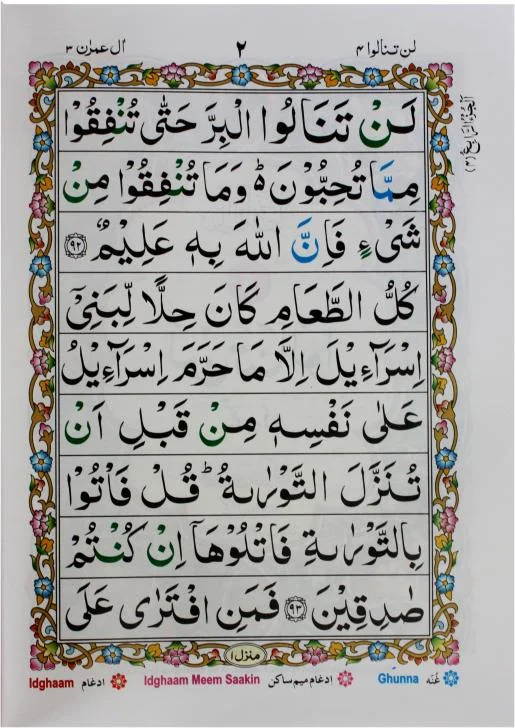 لن تنالوا ۴
۲
اٰل عمرٰن ۳
الجزء الرابع (۴)
لَنْ تَنَالُوا الْبِرَّ حَتّٰى تُنْفِقُوْا
مِمَّا تُحِبُّوْنَ ؕ وَمَا تُنْفِقُوْا مِنْ
شَىْءٍ فَاِنَّ اللّٰهَ بِهٖ عَلِيْمٌ ﴿۹۲﴾
كُلُّ الطَّعَامِ كَانَ حِلًّا لِّبَنِىْۤ
اِسْرَآءِيْلَ اِلَّا مَا حَرَّمَ اِسْرَآءِيْلُ
عَلٰى نَفْسِهٖ مِنْ قَبْلِ اَنْ
تُنَزَّلَ التَّوْرٰىةُ ؕ قُلْ فَاْتُوْا
بِالتَّوْرٰىةِ فَاتْلُوْهَاۤ اِنْ كُنْتُمْ
صٰدِقِيْنَ ﴿۹۳﴾ فَمَنِ افْتَرٰى عَلَى
منزل ۱
Idghaam ادغام Idghaam Meem Saakin ادغام میم ساکن Ghunna غُنّه